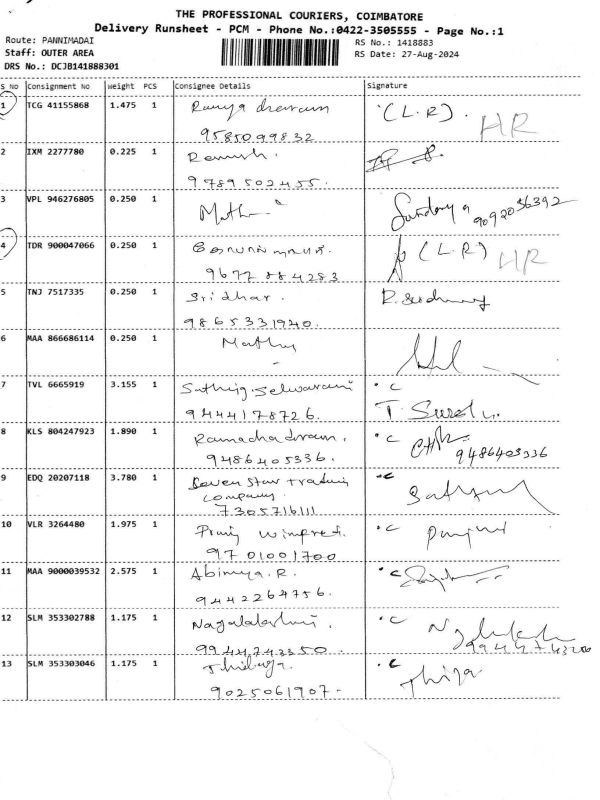 THE PROFESSIONAL COURIERS, COIMBATORE
Delivery Runsheet - PCM - Phone No.:0422-3505555 - Page No.:1
Route: PANNIMADAI RS No.: 1418883
Staff: OUTER AREA RS Date: 27-Aug-2024
DRS No.: DCJB141888301
S No Consignment No Weight PCS Consignee Details Signature
1 TCG 41155868 1.475 1 (L.R). HR
9585099832
2 IXM 2277780 0.225 1 Ramesh.
9789502455.
3 VPL 946276805 0.250 1 9092036392
4 TDR 900047066 0.250 1 (L.R) HR
9677884283
5 TNJ 7517335 0.250 1 Sridhar.
9865331940.
6 MAA 866686114 0.250 1
7 TVL 6665919 3.155 1 c
9444178726. T. Suresh
8 KLS 804247923 1.890 1 c
9486405336. 9486405336
9 EDQ 20207118 3.780 1 Seven Star Trading c
Company
7305716111
10 VLR 3264480 1.975 1 c
9701001700
11 MAA 9000039532 2.575 1 Abinaya.R. c
9442264756.
12 SLM 353302788 1.175 1 c
9944743350.
13 SLM 353303046 1.175 1 c
9025061907-